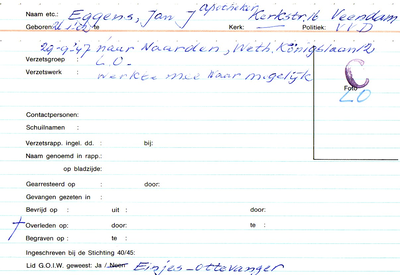 Naam etc.: Eggens, Jan J apotheker Kerkstr. 16 Veendam
Geboren: te Kerk: — Politiek: VVD
29-9-47 naar Naarden, Weth. Königslaan 2
Verzetsgroep L.O.
Verzetswerk : werkte mee waar mogelijk
C
Foto
LO
Contactpersonen:
Schuilnaam :
Verzetsrapp. ingel. dd. : bij:
Naam genoemd in rapp.:
op bladzijde:
Gearresteerd op : door:
Gevangen gezeten in :
Bevrijd op : uit : door:
Overleden op: door: te :
Begraven op : te :
Ingeschreven bij de Stichting 40/45:
Lid G.O.I.W. geweest: Ja / Neen Eintjes-Ottevanger